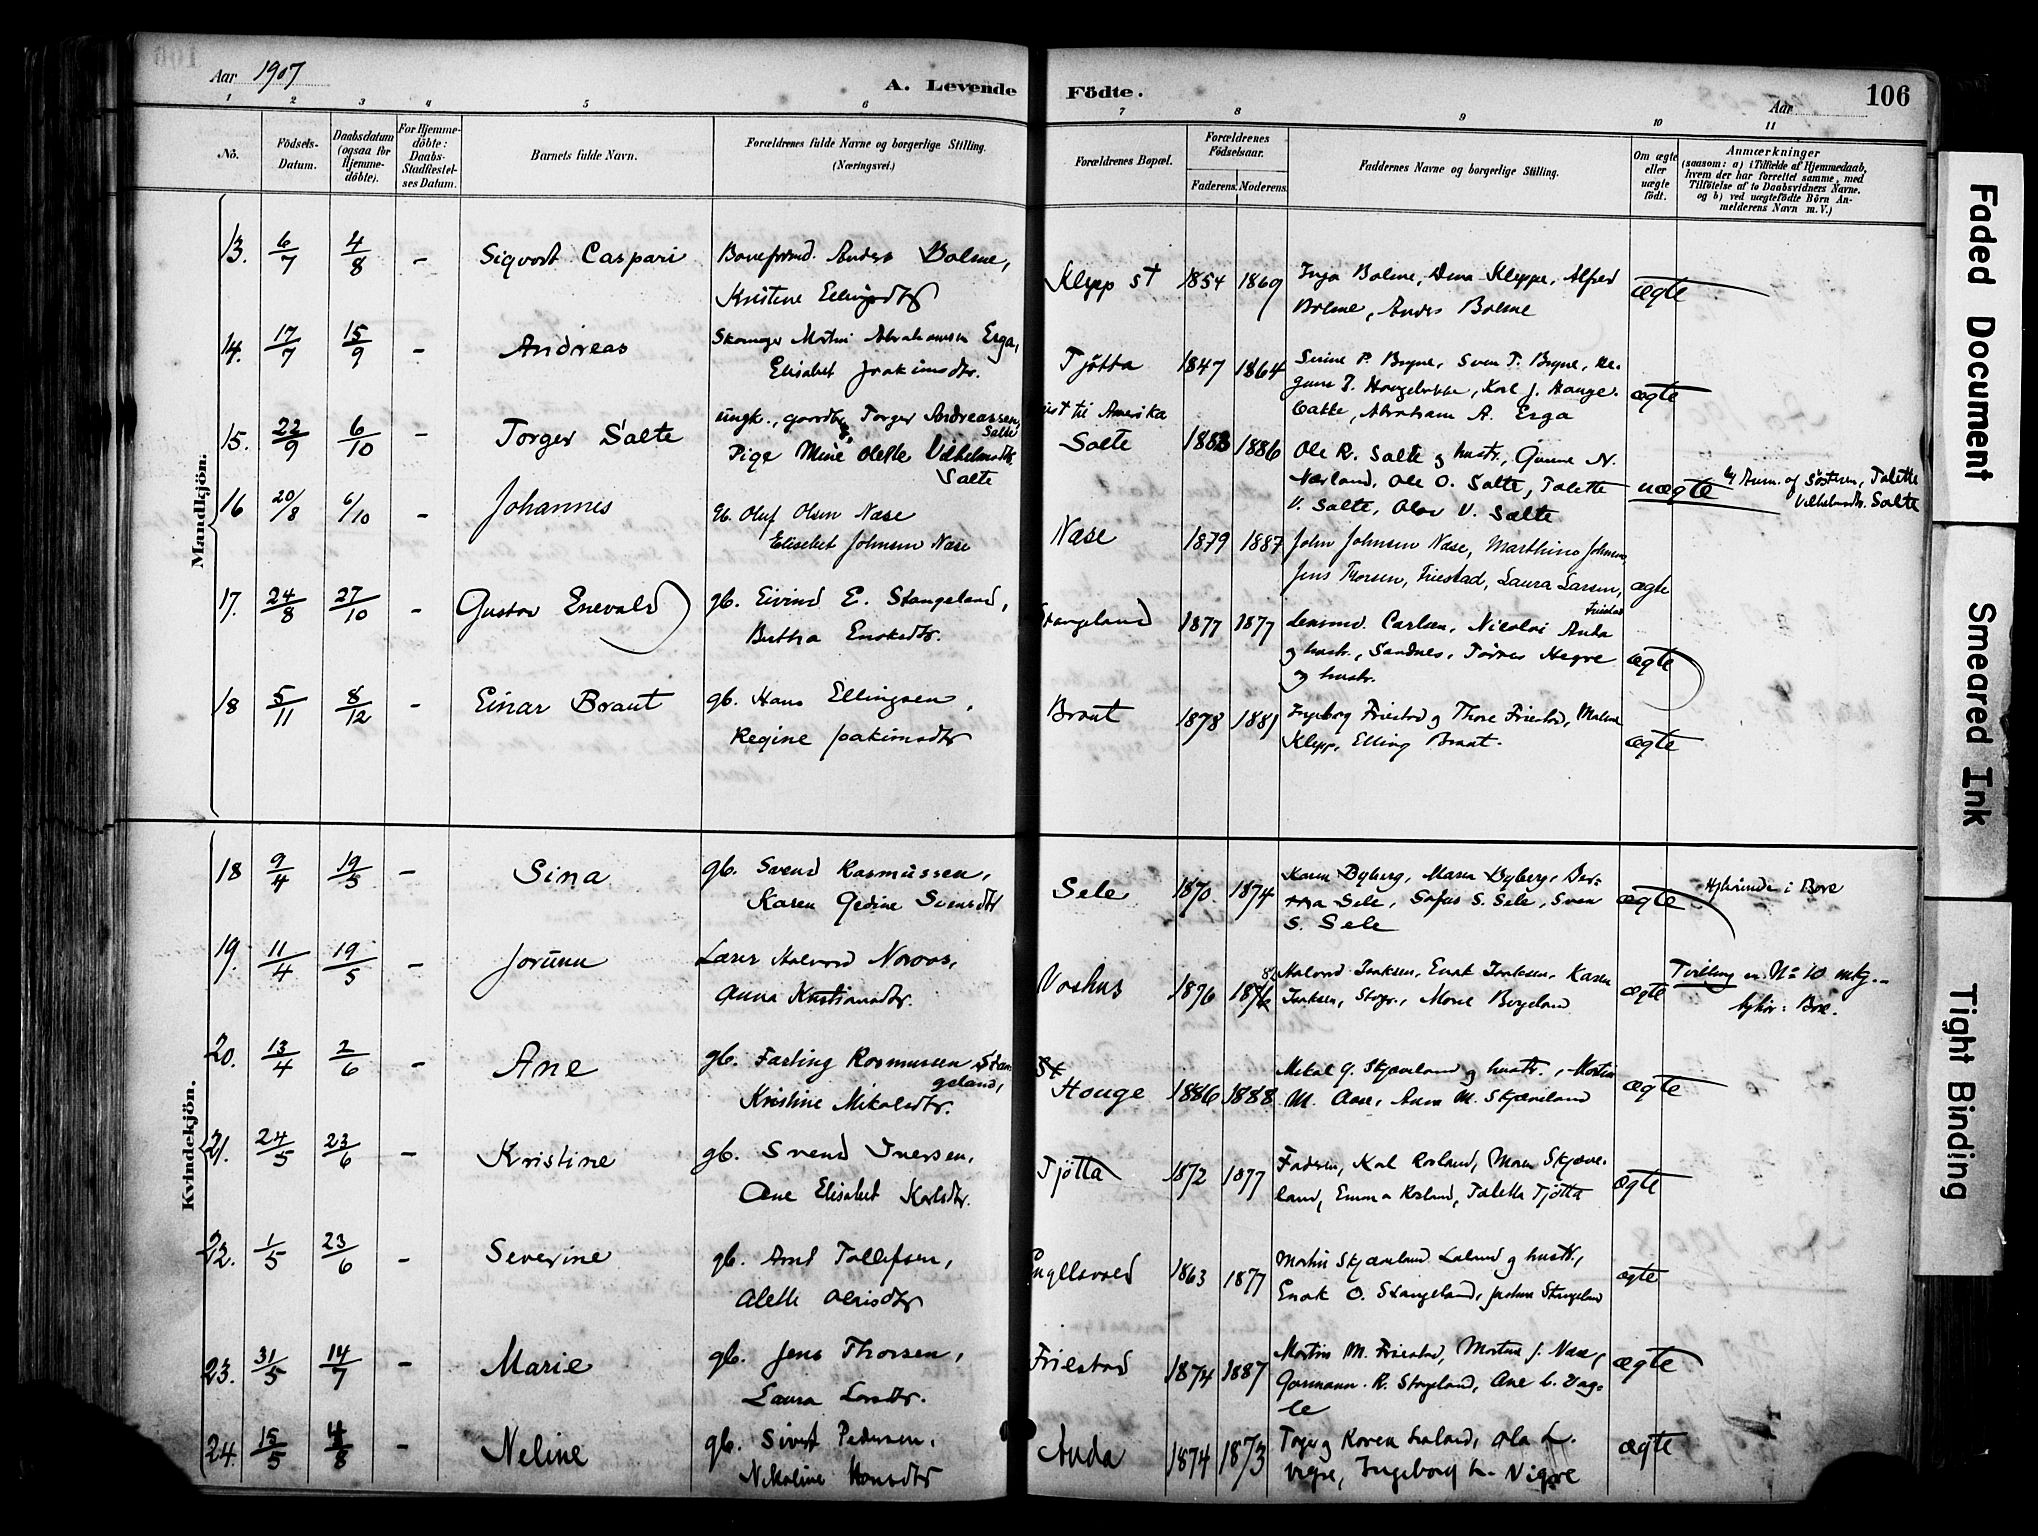 Aar 1907
A. Levende Födte.
Aar
106
1 2 3 4 5 6 7 8 9 10 11
No.
Födsels-Datum.
Daabsdatum (ogsaa for Hjemme-döbte).
For Hjemme-döbte: Daabs-Stadfæstel-ses Datum.
Barnets fulde Navn.
Forældrenes fulde Navne og borgerlige Stilling. (Næringsvei.)
Forældrenes Bopæl.
Forældrenes Födselsaar.
Faderens. Moderens.
Faddernes Navne og borgerlige Stilling.
Om ægte eller uægte födt.
Anmærkninger
(saasom: a) i Tilfælde af Hjemmedaab,
hvem der har forrettet samme, med
Tilföielse af to Daabsvidners Navne.
og b) ved uægtefödte Börn An-
melderens Navn m. V.)
Mandkjön.
13. 6/7 4/8 - Sigvart Caspari
Anders Bolme,
Kristine
Klepp st 1854 1869
Inga Bolme, Dina Kleppe, Alfred
Bolme, Anders Bolme
ægte
14. 17/7 15/9 - Andreas
Skomager Martin Abrahamsen Erga,
Elisabet Joakimsdtr.
Tjøtta 1847 1864
Serine P. Bryne, Sven T. Bryne,
Karl J. Hauge-
bakke, Abraham A. Erga
ægte
15. 22/9 6/10 - Torger Salte
ungk., Torger Andreassen Salte
Pige Mine Olette Vilhelmsdtr. Salte
til Amerika
Salte 1888 1886
Ole R. Salte og hustr., Gunne N.
Nærland, Ole O. Salte, Talette
V. Salte, Olav V. Salte
uægte
Anm. af Søsteren, Talette
Vilhelmsdtr. Salte
16 20/8 6/10 - Johannes
gb. Oluf Olsen Næse
Elisabet Johnsen Næse
Næse 1879 1887
John Johnsen Næse, Marthine Johnsen
Jens Thorsen, Friestad, Laura Larsen, Friestad
ægte
17. 24/8 27/10 - Gustav Enevald
gb. Eivind E. Stangeland,
Bertha Enoksdtr.
Stangeland 1877 1877
Carlsen, Nicolai Anda
og hustr., Sandnes, Tørres Hegre
og hustr.
ægte
18 5/11 8/12 - Einar Braut
gb. Hans Ellingsen,
Regine Joakimsdtr
Braut 1878 1881
Ingeborg Friestad og Thore Friestad, Malene
Klepp, Elling Braut.
ægte
Kvindekjön.
18 9/4 19/5 - Sina
gb. Svend Rasmussen,
Karen Gedine Svensdtr
Sele 1870 1874
Karen Byberg, Maren Byberg, Ber-
tha Sele, Sofus S. Sele, Sven
S. Sele
ægte
i Bore
19. 11/4 19/5 - Jorunn
Lærer Halvord Noraas,
Anna Kristiansdtr.
Voshus 1876
Halvord Isaksen, Enok Isaksen, Karen
Isaksen,
ægte
Tvilling m. No 10 mkj.
: Bore.
20. 13/4 2/6 - Ane
gb. Farting Rasmussen Stan-
geland,
Kristine Mikalsdtr.
St
Houge 1886 1888
Mikal G. Skjæveland og hustr., Martin
M. Aase, Anna M. Skjæveland
ægte
21. 24/5 23/6 - Kristine
gb. Svend Iversen,
Ane Elisabet Karlsdtr.
Tjøtta 1872 1877
Faderen, Karl Rosland, Maren Skjæve-
land, Emma Rosland, Talette Tjøtta
ægte
22. 1/5 23/6 - Severine
gb. Arnt Tollefsen,
Alette
1863 1877
Martin Skjæveland Laland og hustr.,
Enok O. Stangeland, Stangeland
ægte
23. 31/5 14/7 - Marie
gb. Jens Thorsen,
Laura Larsdtr.
Friestad 1874 1887
Martin M. Friestad, Martin J. Næse,
Garmann R. Stangeland, Ane L. Vag-
le
ægte
24. 15/5 4/8 - Neline
gb. Sivert Pedersen,
Nikoline Hansdtr
Anda 1874 1873
og Karen Laland, Ola L.
Vigre, Ingeborg L. Vigre
ægte
Faded Document
Smeared Ink
Tight Binding